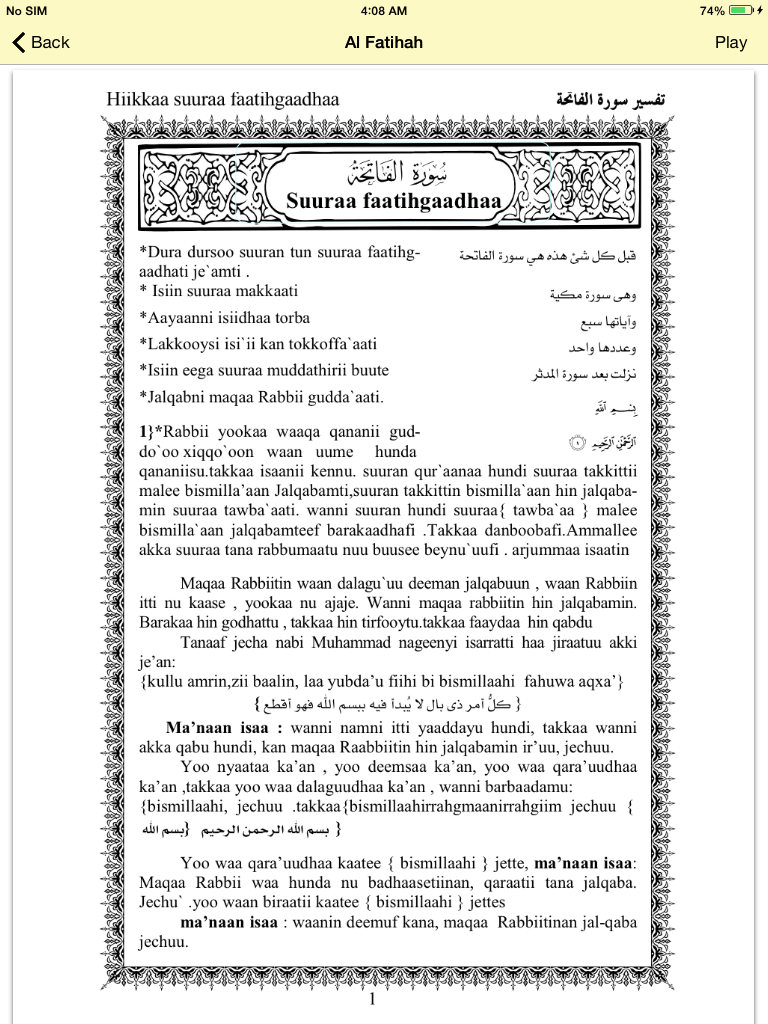 No SIM 4:08 AM 74%
Back Al Fatihah Play
Hiikkaa suuraa faatihgaadhaa تفسير سورة الفاتحة
سُورَةُ الفَاتِحَةِ
Suuraa faatihgaadhaa
*Dura dursoo suuran tun suuraa faatihg- قبل كل شئ هذه هي سورة الفاتحة
aadhati je`amti .
* Isiin suuraa makkaati وهى سورة مكية
*Aayaanni isiidhaa torba وآياتها سبع
*Lakkooysi isi`ii kan tokkoffa`aati وعددها واحد
*Isiin eega suuraa muddathirii buute نزلت بعد سورة المدثر
*Jalqabni maqaa Rabbii gudda`aati. بِسْمِ اللَّهِ
1}*Rabbii yookaa waaqa qananii gud- الرَّحْمَٰنِ الرَّحِيمِ ١
do`oo xiqqo`oon waan uume hunda
qananiisu.takkaa isaanii kennu. suuran qur`aanaa hundi suuraa takkittii
malee bismilla’aan Jalqabamti,suuran takkittin bismilla`aan hin jalqaba-
min suuraa tawba`aati. wanni suuran hundi suuraa{ tawba`aa } malee
bismilla`aan jalqabamteef barakaadhafi .Takkaa danboobafi.Ammallee
akka suuraa tana rabbumaatu nuu buusee beynu`uufi . arjummaa isaatin
Maqaa Rabbiitin waan dalagu`uu deeman jalqabuun , waan Rabbiin
itti nu kaase , yookaa nu ajaje. Wanni maqaa rabbiitin hin jalqabamin.
Barakaa hin godhattu , takkaa hin tirfooytu.takkaa faaydaa hin qabdu
Tanaaf jecha nabi Muhammad nageenyi isarratti haa jiraatuu akki
je’an:
{kullu amrin,zii baalin, laa yubda’u fiihi bi bismillaahi fahuwa aqxa’}
{ كلُّ آمر ذى بال لا يُبدآ فيه ببسم الله فهو آقطع }
Ma’naan isaa : wanni namni itti yaaddayu hundi, takkaa wanni
akka qabu hundi, kan maqaa Raabbiitin hin jalqabamin ir’uu, jechuu.
Yoo nyaataa ka’an , yoo deemsaa ka’an, yoo waa qara’uudhaa
ka’an ,takkaa yoo waa dalaguudhaa ka’an , wanni barbaadamu:
{bismillaahi, jechuu .takkaa{bismillaahirrahgmaanirrahgiim jechuu {
بسم الله} بسم الله الرحمن الرحيم {
Yoo waa qara’uudhaa kaatee { bismillaahi } jette, ma’naan isaa:
Maqaa Rabbii waa hunda nu badhaasetiinan, qaraatii tana jalqaba.
Jechu` .yoo waan biraatii kaatee { bismillaahi } jettes
ma’naan isaa : waanin deemuf kana, maqaa Rabbiitinan jal-qaba
jechuu.
1